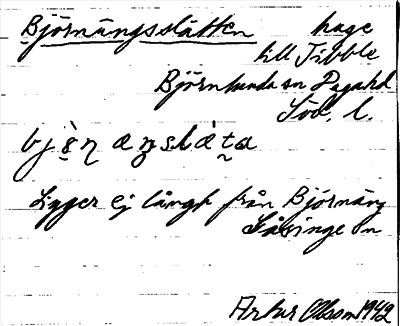 Björnängsslåtten hage
till Tibble
Björnlunda sn Dagahd
Söd. l.
Ligger ej långt från Björnäng
Gåsinge sn
Artur Olsson 1942